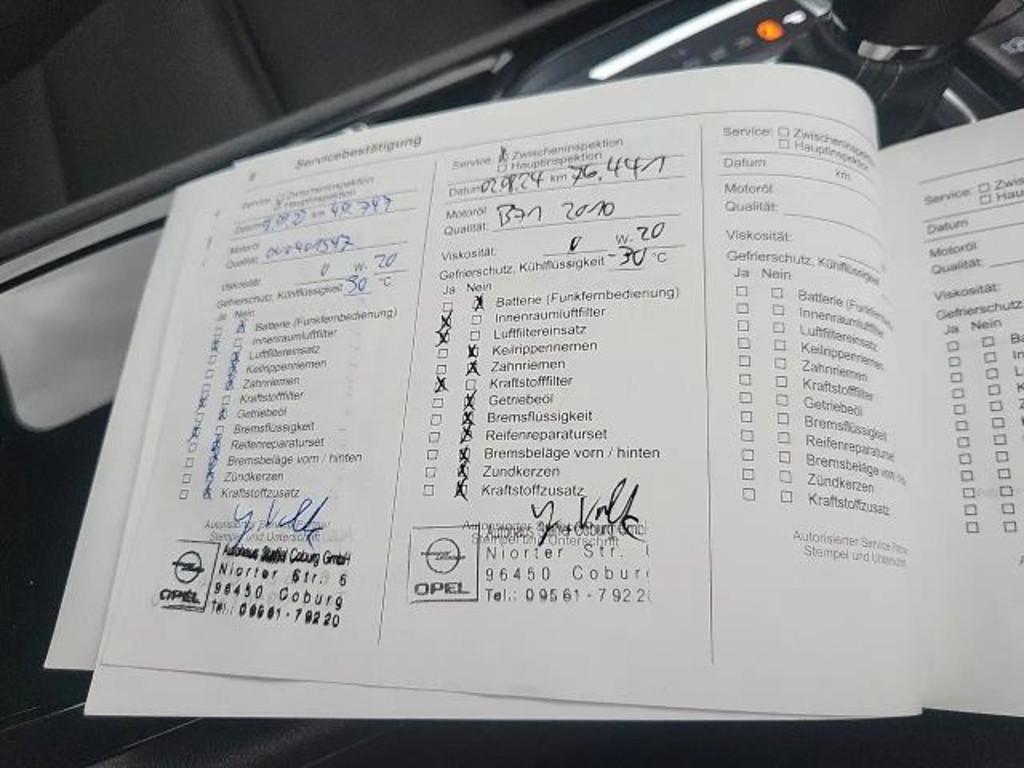 8 Servicebestätigung
Service: Zwischeninspektion
Hauptinspektion
Datum km
Motoröl
Qualität:
Viskosität: 0 W. 20
Gefrierschutz, Kühlflüssigkeit 30 °C
Ja Nein
Batterie (Funkfernbedienung)
Innenraumluftfilter
Luftfiltereinsatz
Keilrippenriemen
Zahnriemen
Kraftstofffilter
Getriebeöl
Bremsflüssigkeit
Reifenreparaturset
Bremsbeläge vorn / hinten
Zündkerzen
Kraftstoffzusatz
Stempel und Unterschrift
Coburg GmbH
Niorter Str. 6
96450 Coburg
Tel.: 09561-79220
OPEL
Service: Zwischeninspektion
Hauptinspektion
Datum 02.08.24 km 76.441
Motoröl
Qualität: B71 2010
Viskosität: 0 W. 20
Gefrierschutz, Kühlflüssigkeit -30 °C
Ja Nein
Batterie (Funkfernbedienung)
Innenraumluftfilter
Luftfiltereinsatz
Keilrippenriemen
Zahnriemen
Kraftstofffilter
Getriebeöl
Bremsflüssigkeit
Reifenreparaturset
Bremsbeläge vorn / hinten
Zündkerzen
Kraftstoffzusatz
Stempel und Unterschrift
Coburg GmbH
Niorter Str.
96450 Coburg
Tel.: 09561-7922
OPEL
Service: Zwischeninspektion
Hauptinspektion
Datum km
Motoröl
Qualität:
Viskosität:
Gefrierschutz, Kühlflüssigkeit
Ja Nein
Batterie (Funkfern
Innenraumluftfilter
Luftfiltereinsatz
Keilrippenriemen
Zahnriemen
Kraftstofffilter
Getriebeöl
Bremsflüssigkeit
Reifenreparaturset
Bremsbeläge vorn
Zündkerzen
Kraftstoffzusatz
Autorisierter Service Partner
Stempel und Unterschrift
Service: Zwi
Hau
Datum
Motoröl
Qualität:
Viskosität:
Gefrierschutz
Ja Nein